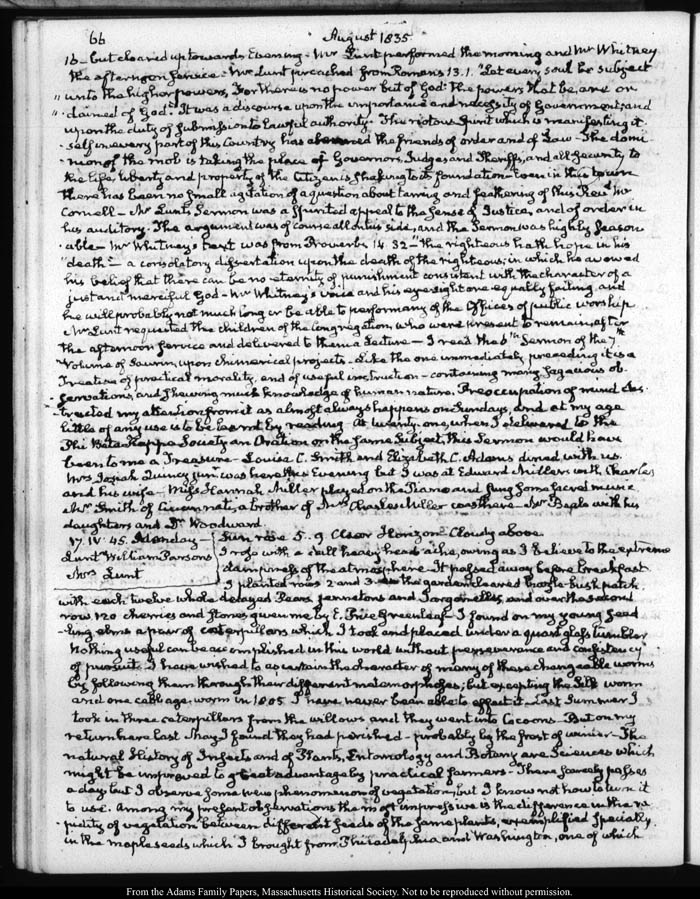 66 August 1835
16 – but cleared up towards Evening – Mr Lunt performed the morning and Mr Whitney
the afternoon service. Mr Lunt preached from Romans 13.1. "Let every soul be subject
"unto the higher powers, For there is no power but of God: the powers that be, are or
"dained of God." It was a discourse upon the importance and necessity of Government, and
upon the duty of submission to lawful authority. The riotous spirit which is manifesting it
self in every part of this Country has the friends of order and of Law. The domi
nion of the mob is taking the place of Governors, Judges and Sheriffs, and all security to
the life, liberty and property of the Citizen is shaking to its foundation. Even in this town
there has been no small agitation of a question about tarring and feathering of this Revd Mr
Cornell – Mr Lunt's Sermon was a spirited appeal to the sense of Justice, and of order in
his auditory. The argument was of course all on his side, and the Sermon was highly season
able – Mr Whitney's text was from Proverbs 14. 32 – "the righteous hath hope in his
"death" – a consolatory dissertation upon the death of the righteous; in which he avowed
his belief that there can be no eternity of punishment consistent with the character of a
just and merciful God – Mr Whitney's voice and his eyesight are equally failing and
he will probably not much longer be able to perform any of the Offices of public worship
Mr Lunt requested the children of the congregation, who were present to remain after
the afternoon service and delivered to them a Lecture – I read the 6th Sermon of the 7th
Volume of Saurin, upon chimerical projects. Like the one immediately preceding it is a
Treatise of practical morality, and of useful instruction – containing many sagacious ob
servations, and shewing much knowledge of human nature. Preoccupation of mind dis
tracted my attention from it as almost always happens on Sundays, and at my age
little of any use is to be learnt by reading. At twenty-one, when I delivered to the
Phi Beta Kappa Society an Oration on the same subject, this Sermon would have
been to me a Treasure – Louisa C. Smith and Elizabeth C. Adams dined with us.
Mrs Josiah Quincy junr was here this Evening but I was at Edward Miller's with Charles
and his wife – Miss Hannah Miller played on the Piano and sung some sacred music
Mr Smith of Cincinnati, a brother of Mrs Charles Miller was there – Mr Beale with his
daughters and Dr Woodward.
17. IV. 45. Monday – Sun rose 5. 9 Clear Horizon Cloudy above
Lunt William Parsons I rose with a dull heavy head-ache, owing as I believe to the extreme
Mrs Lunt dampness of the atmosphere. It passed away before breakfast.
I planted rows 2 and 3 in the garden cleared patch
with each twelve whole decayed Pears jennetons and Jargonelles, and over the second
row 120 cherries and stones given me by E. Price Greenleaf – I found on my young seed
ling elms a pair of caterpillars which I took and placed under a quart glass tumbler
Nothing useful can be accomplished in this world without perseverance and consistency
of pursuit. I have wished to ascertain the character of many of these changeable worms
by following them through their different metamorphoses; but excepting the Silk worm
and one cabbage worm in 1805 I have never been able to effect it. Last Summer I
took in three caterpillars from the willows and they went into Cocoons. But on my
return here last May I found they had perished – probably by the frost of winter – The
natural History of Insects and of Plants, Entomology and Botany are Sciences which
might be improved to great advantage by practical farmers – There scarcely passes
a day but I observe some new phenomenon of vegetation, but I know not how to turn it
to use. Among my present observations the most impressive is the difference in the ra
pidity of vegetation between different seeds of the same plants, exemplified specially
in the maple seeds which I brought from Philadelphia and Washington, one of which
From the Adams Family Papers, Massachusetts Historical Society. Not to be reproduced without permission.